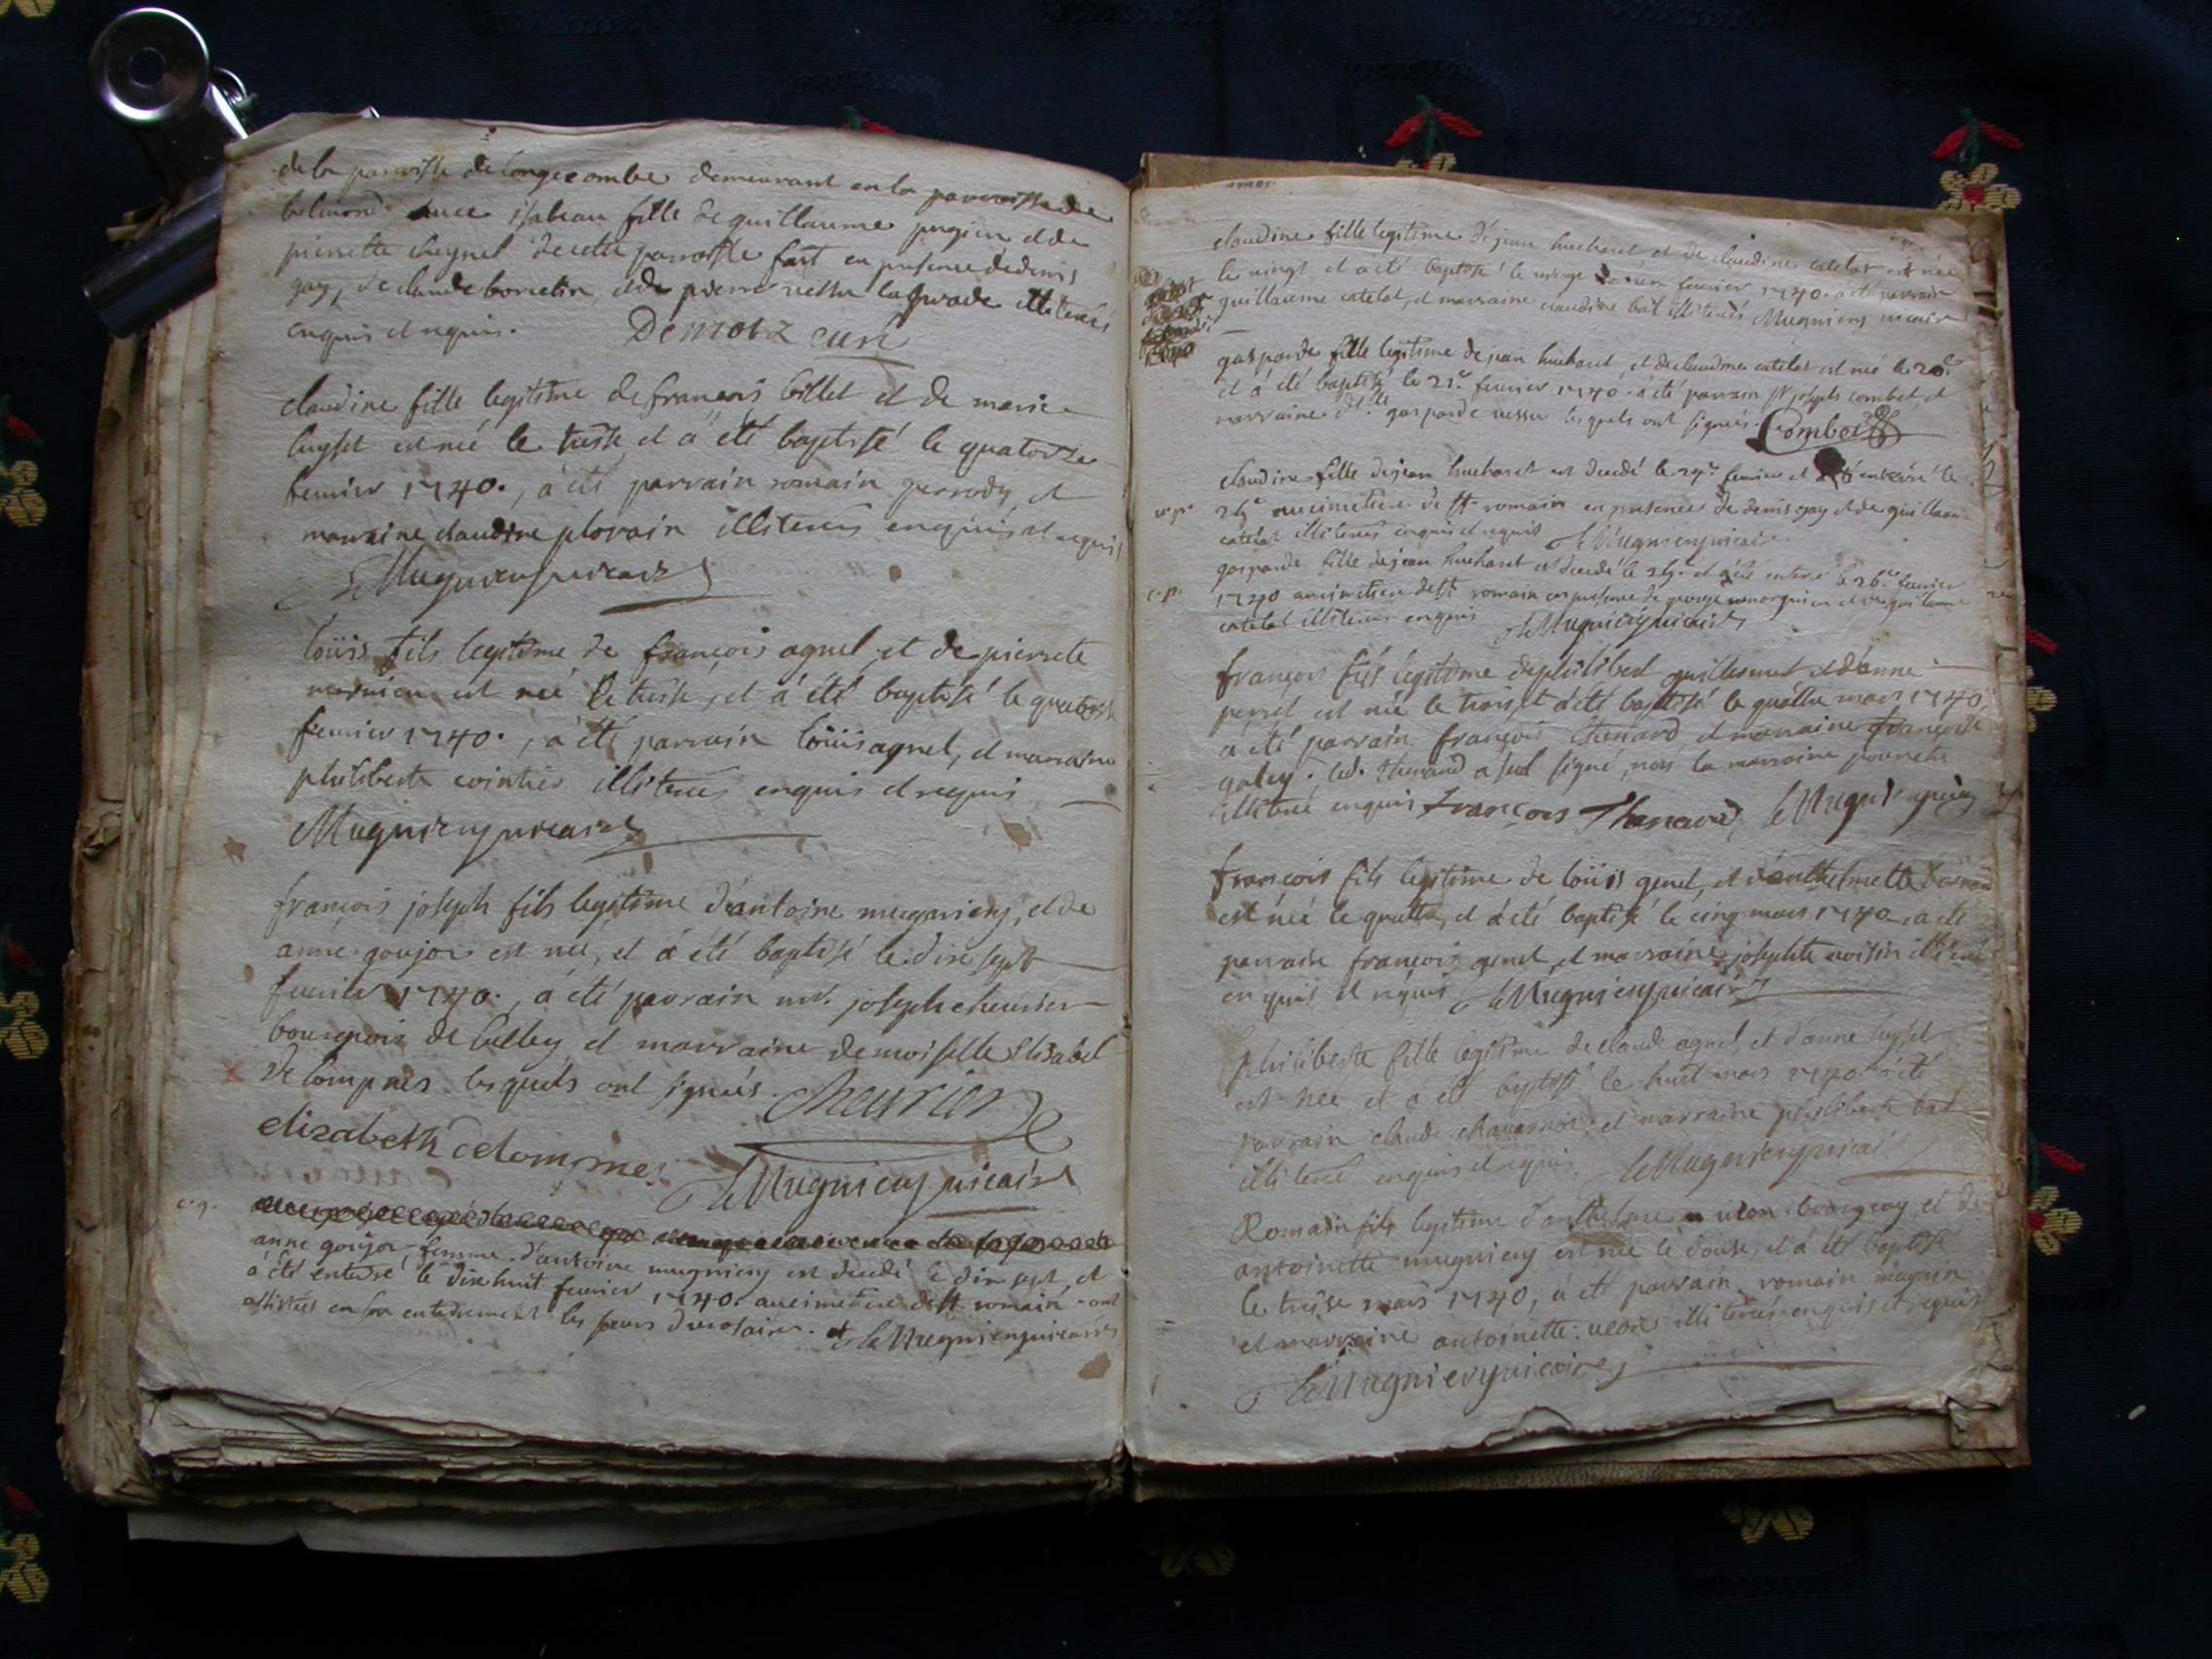 de la paroisse de longecombe demeurant en la paroisse de
belmond avec isabeau fille de guillaume pugieu et de
pierrette cheynel de cette paroisse fait en presence de denis
gay, de claude borretin, et de pierre illiterés
enquis et requis. Demotz curé
claudine fille legitime de françois billet et de marie
luyset est née le treise et a été baptisé le quatorze
feurier 1740., a été parrain romain perrody et
marraine claudine plovain illiterés enquis et requis
Mugnieryvicaire
loüis fils legitime de françois agnel, et de pierrete
est né le treise, et a été baptisé le quatorse
feurier 1740., a été parrain loüis agnel, et marraine
philiberte cointier illiterés enquis et requis
Mugnieryvicaire
françois joseph fils legitime d'antoine mugniery, et de
anne goujon est née, et a été baptisé le dix sept
feurier 1740., a été parrain mr. joseph cheurier
bourgeois de belley et marraine demoiselle Elisabet
de lompnes lesquels ont signés. Cheurier
elizabeth delompnes
LeMugniery vicaire
c.g.
anne goujon, femme d'antoine mugniery est decedé le dix sept, et
a été enterré le dix huit feurier 1740. au cimetiere de st romain ont
assistées en son enterrement les soeurs du rosaire. et LeMugnieryvicaire
claudine fille legitime de jean hucharet, et de claudine catelat est née
le vingt et a été baptisé le vingt un feurier 1740. a été parrain
guillaume catelat, et marraine claudine bal illiterés Mugniery vicaire
gasparde fille legitime de jean hucharet, et de claudine catelat est née le 20e
et a été baptisé le 21e. feurier 1740. a été parrain sr joseph combet, et
marraine dlle gasparde lesquels ont signés. Combet
claudine fille de jean hucharet est decedé le feurier et a été enterré le
au cimetiere de st romain en presence de denis gay et de guillaume
catelat illiterés enquis et requis LeMugnieryvicaire
gasparde fille de jean hucharet est decedé le et a été enterré le 26e feurier
1740 au cimetiere de st romain en presence de george et de guillaume
catelat illiterés enquis LeMugnieryvicaire
françois fils legitime de philibert guillermet et d'anne
perret est né le trois, et a été baptisé le quatre mars 1740
a été parrain françois thenard et marraine françoise
galey. led. thenard a seul signé, non la marraine pour etre
illiteré enquis françois Thenard, LeMugniery
françois fils legitime de loüis genet, et d'anthelmette
est né le quatre, et a été baptisé le cinq mars 1740. a été
parrain françois genet, et marraine josephte voisin illiterés
enquis et requis LeMugnieryvicaire
philiberte fille legitime de claude agnel, et d'anne luyset
est née et a été baptisé le huit mars 1740. a été
parrain claude et marraine philiberte bal
illiterés enquis et requis. LeMugnieryvicaire
Romain fils legitime d'anthelme et de
antoinette mugniery est né le douse, et a été baptisé
le treise mars 1740, a été parrain romain mugnier
et marraine antoinette illiterés enquis et requis
LeMugnieryvicaire